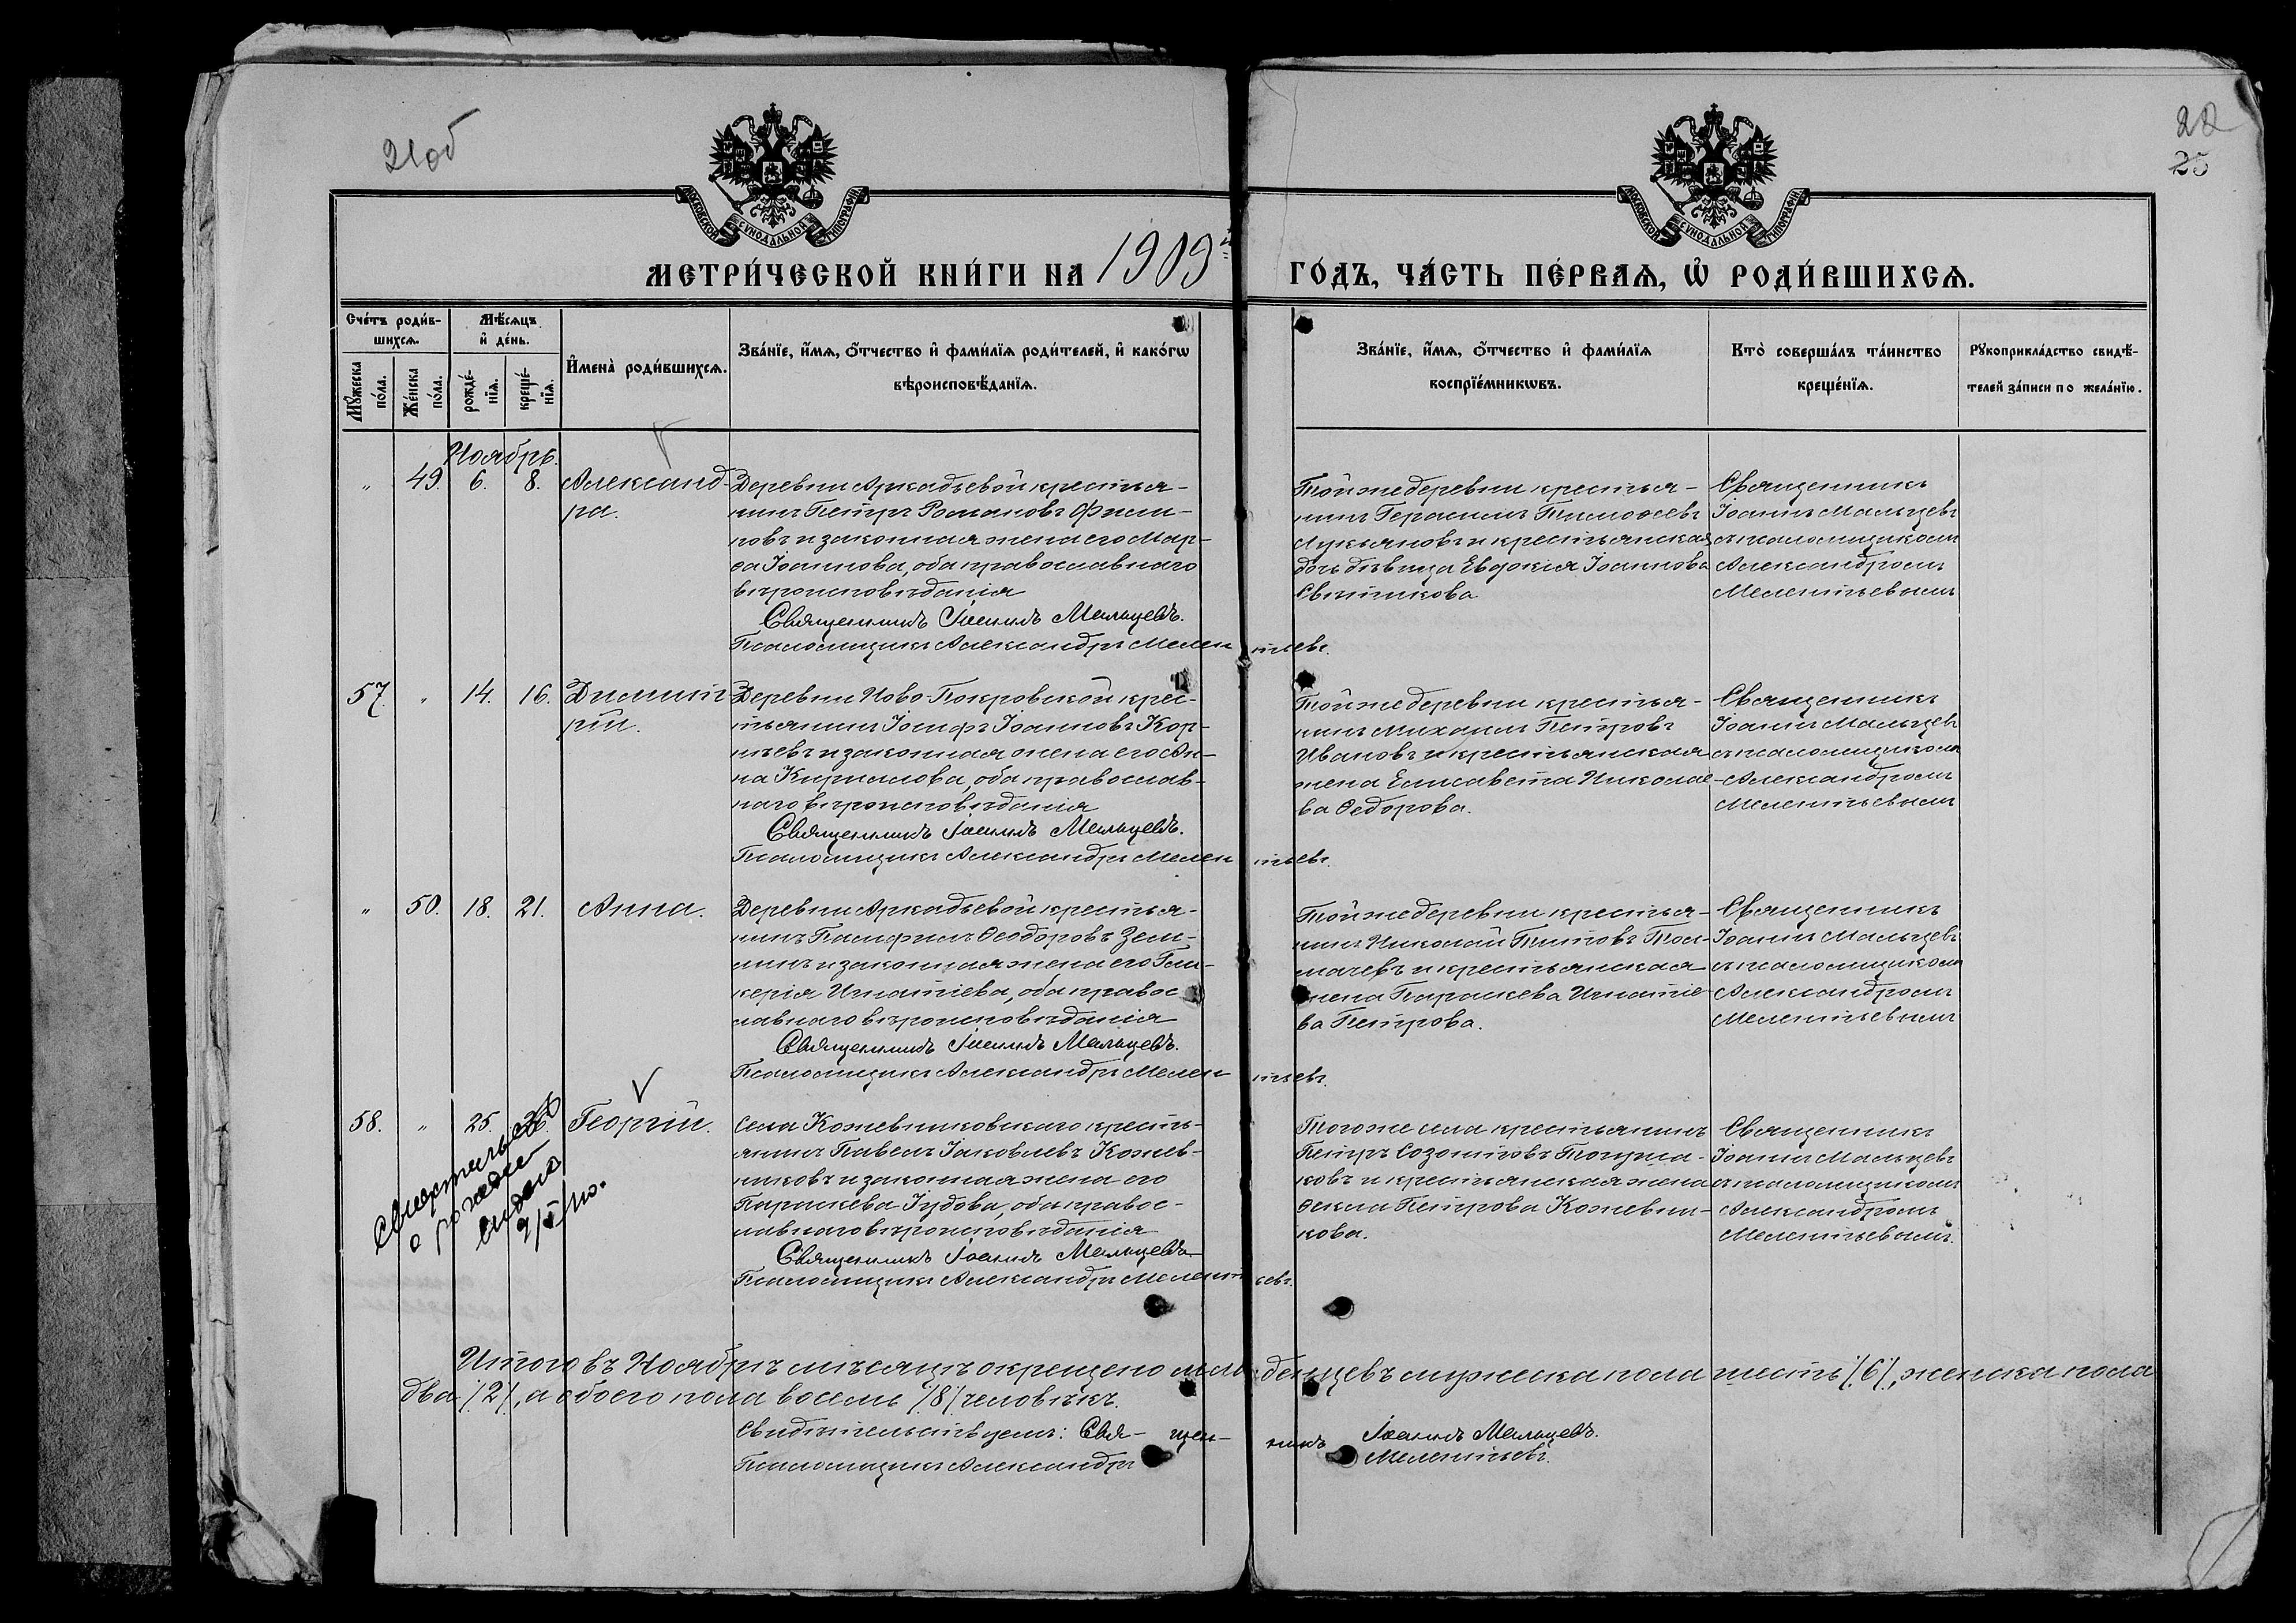 21об
22
25
МОСКОВСКОЙ СѴНОДАЛЬНОЙ ТИПОГРАФІИ
МОСКОВСКОЙ СѴНОДАЛЬНОЙ ТИПОГРАФІИ
МЕТРИ́ЧЕСКОЙ КНИ́ГИ НА 1909й
ГО́ДЪ, ЧА́СТЬ ПЕ́РВАѦ, Ѡ҆ РОДИ́ВШИХСѦ.
Сче́тъ роди́в-
шихсѧ.
Мѣ́сѧцъ
и҆ де́нь.
Мꙋ́жеска
по́ла.
Же́нска
по́ла.
рожде́-
нїѧ.
креще́-
нїѧ.
И҆мена̀ роди́вшихсѧ.
Зва́нїе, и҆́мѧ, ѻ҆́тчество и҆ фами́лїѧ роди́телей, и҆ како́гѡ
вѣроисповѣ́данїѧ.
Зва́нїе, и҆́мѧ, ѻ҆́тчество и҆ фами́лїѧ
воспрїе́мникѡвъ.
Кто̀ соверша́лъ та́инство
креще́нїѧ.
Рꙋкоприкла́дство свидѣ́-
телей за́писи по жела́нїю.
Ноябрь.
" 49. 6. 8. Александ-
ра.
Деревни Аркадьевой крестья-
нинъ Петръ Романовъ Фили-
повъ и законная жена его Мар-
ѳа Іоаннова, оба православнаго
вѣроисповѣданія
Священникъ Іоаннъ Мальцевъ.
Псаломщикъ Александръ Мелентьевъ.
Той же деревни крестья-
нинъ Герасимъ Тимоѳеевъ
Лукьяновъ и крестьянская
дочь дѣвица Евдокія Іоаннова
Свѣтикова
Священникъ
Іоаннъ Мальцевъ
съ псаломщикомъ
Александромъ
Мелентьевымъ
57. " 14. 16. Димит-
рій.
Деревни Ново-Покровской крес-
тьянинъ Іосифъ Іоанновъ Кор-
нѣевъ и законная жена его Ан-
на Кириллова, оба православ-
наго вѣроисповѣданія
Священникъ Іоаннъ Мальцевъ.
Псаломщикъ Александръ Мелентьевъ.
Той же деревни крестья-
нинъ Михаилъ Петровъ
Ивановъ и крестьянская
жена Елисавета Николае-
ва Ѳедорова.
Священникъ
Іоаннъ Мальцевъ
съ псаломщикомъ
Александромъ
Мелентьевымъ
" 50. 18. 21. Анна.
Деревни Аркадьевой крестья-
нинъ Памфилъ Ѳеодоровъ Зем-
линъ и законная жена его Гли-
керія Игнатіева, оба правос-
лавнаго вѣроисповѣданія
Священникъ Іоаннъ Мальцевъ.
Псаломщикъ Александръ Мелентьевъ.
Той же деревни крестья-
нинъ Николай Титовъ Тол-
мачевъ и крестьянская
жена Параскева Игнатіе-
ва Петрова.
Священникъ
Іоаннъ Мальцевъ
съ псаломщикомъ
Александромъ
Мелентьевымъ
58. " 25. 26. Георгій.
Свидетельство
о рожден
выдано
Села Кожевниковскаго кресть-
янинъ Павелъ Іаковлевъ Кожев-
никовъ и законная жена его
Параскева Іудова, оба правос-
лавнаго вѣроисповѣданія
Священникъ Іоаннъ Мальцевъ
Псаломщикъ Александръ Мелентьевъ.
Того же села крестьянинъ
Петръ Созонтовъ
ковъ и крестьянская жена
Ѳекла Петрова Кожевни-
кова.
Священникъ
Іоаннъ Мальцевъ
съ псаломщикомъ
Александромъ
Мелентьевымъ.
Итого въ Ноябрѣ мѣсяцѣ окрещено младенцевъ мужеска пола шесть /6/, женска пола
два /2/, а обоего пола восемь /8/ человѣкъ.
Свидѣтельствуемъ: Священникъ Іоаннъ Мальцевъ.
Псаломщикъ Александръ Мелентьевъ.